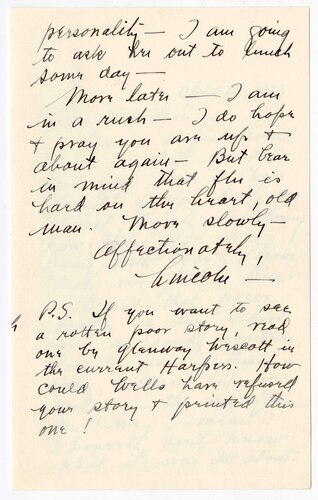 personality — I am going
to ask her out to lunch
some day —
More later — I am
in a rush — I do hope
+ pray you are up +
about again — But bear
in mind that flu is
hard on the heart, old
man. Move slowly —
Affectionately,
Lincoln —
P.S. If you want to see
a rotten poor story, read
one by Glenway Wescott in
the current Harpers. How
could Wells have refused
your story + printed this
one!